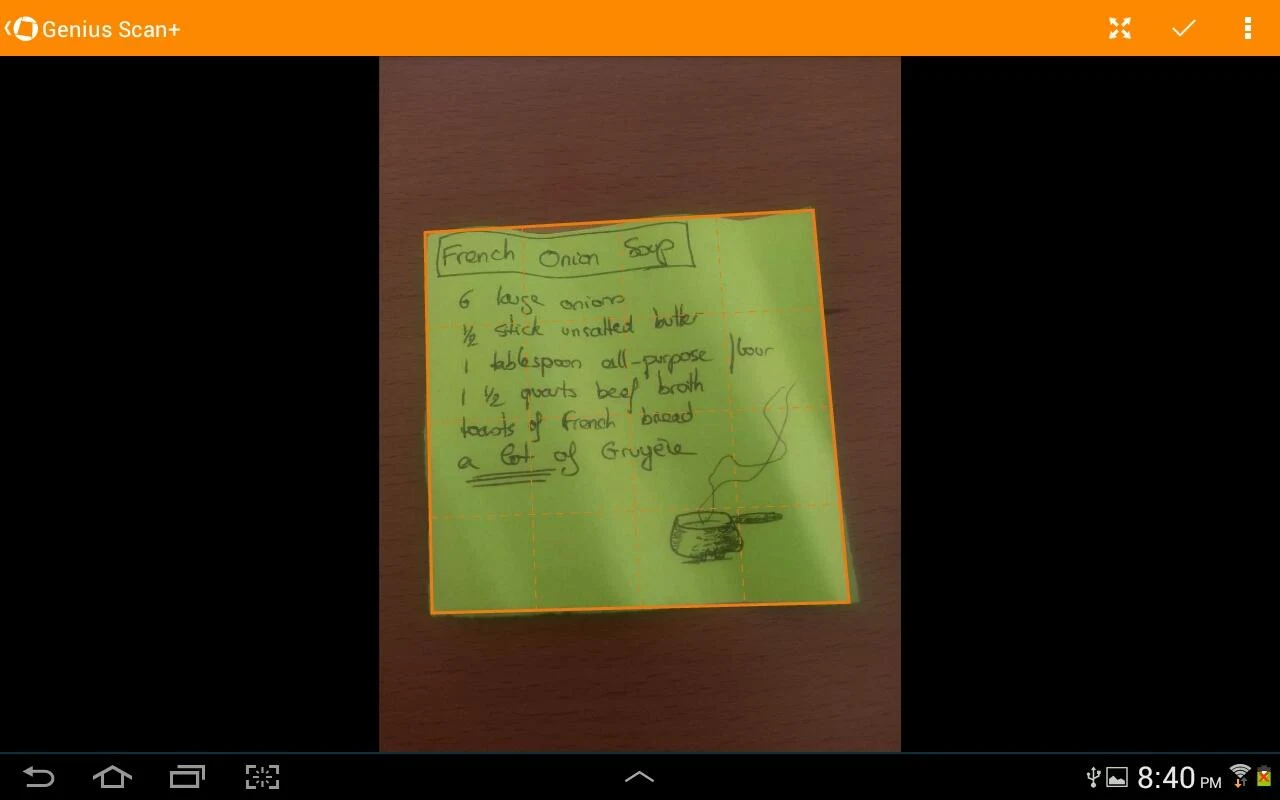 Genius Scan+
French Onion Soup
6 large onions
½ stick unsalted butter
1 tablespoon all-purpose flour
1 ½ quarts beef broth
toasts of French bread
a lot of Gruyère
8:40 PM